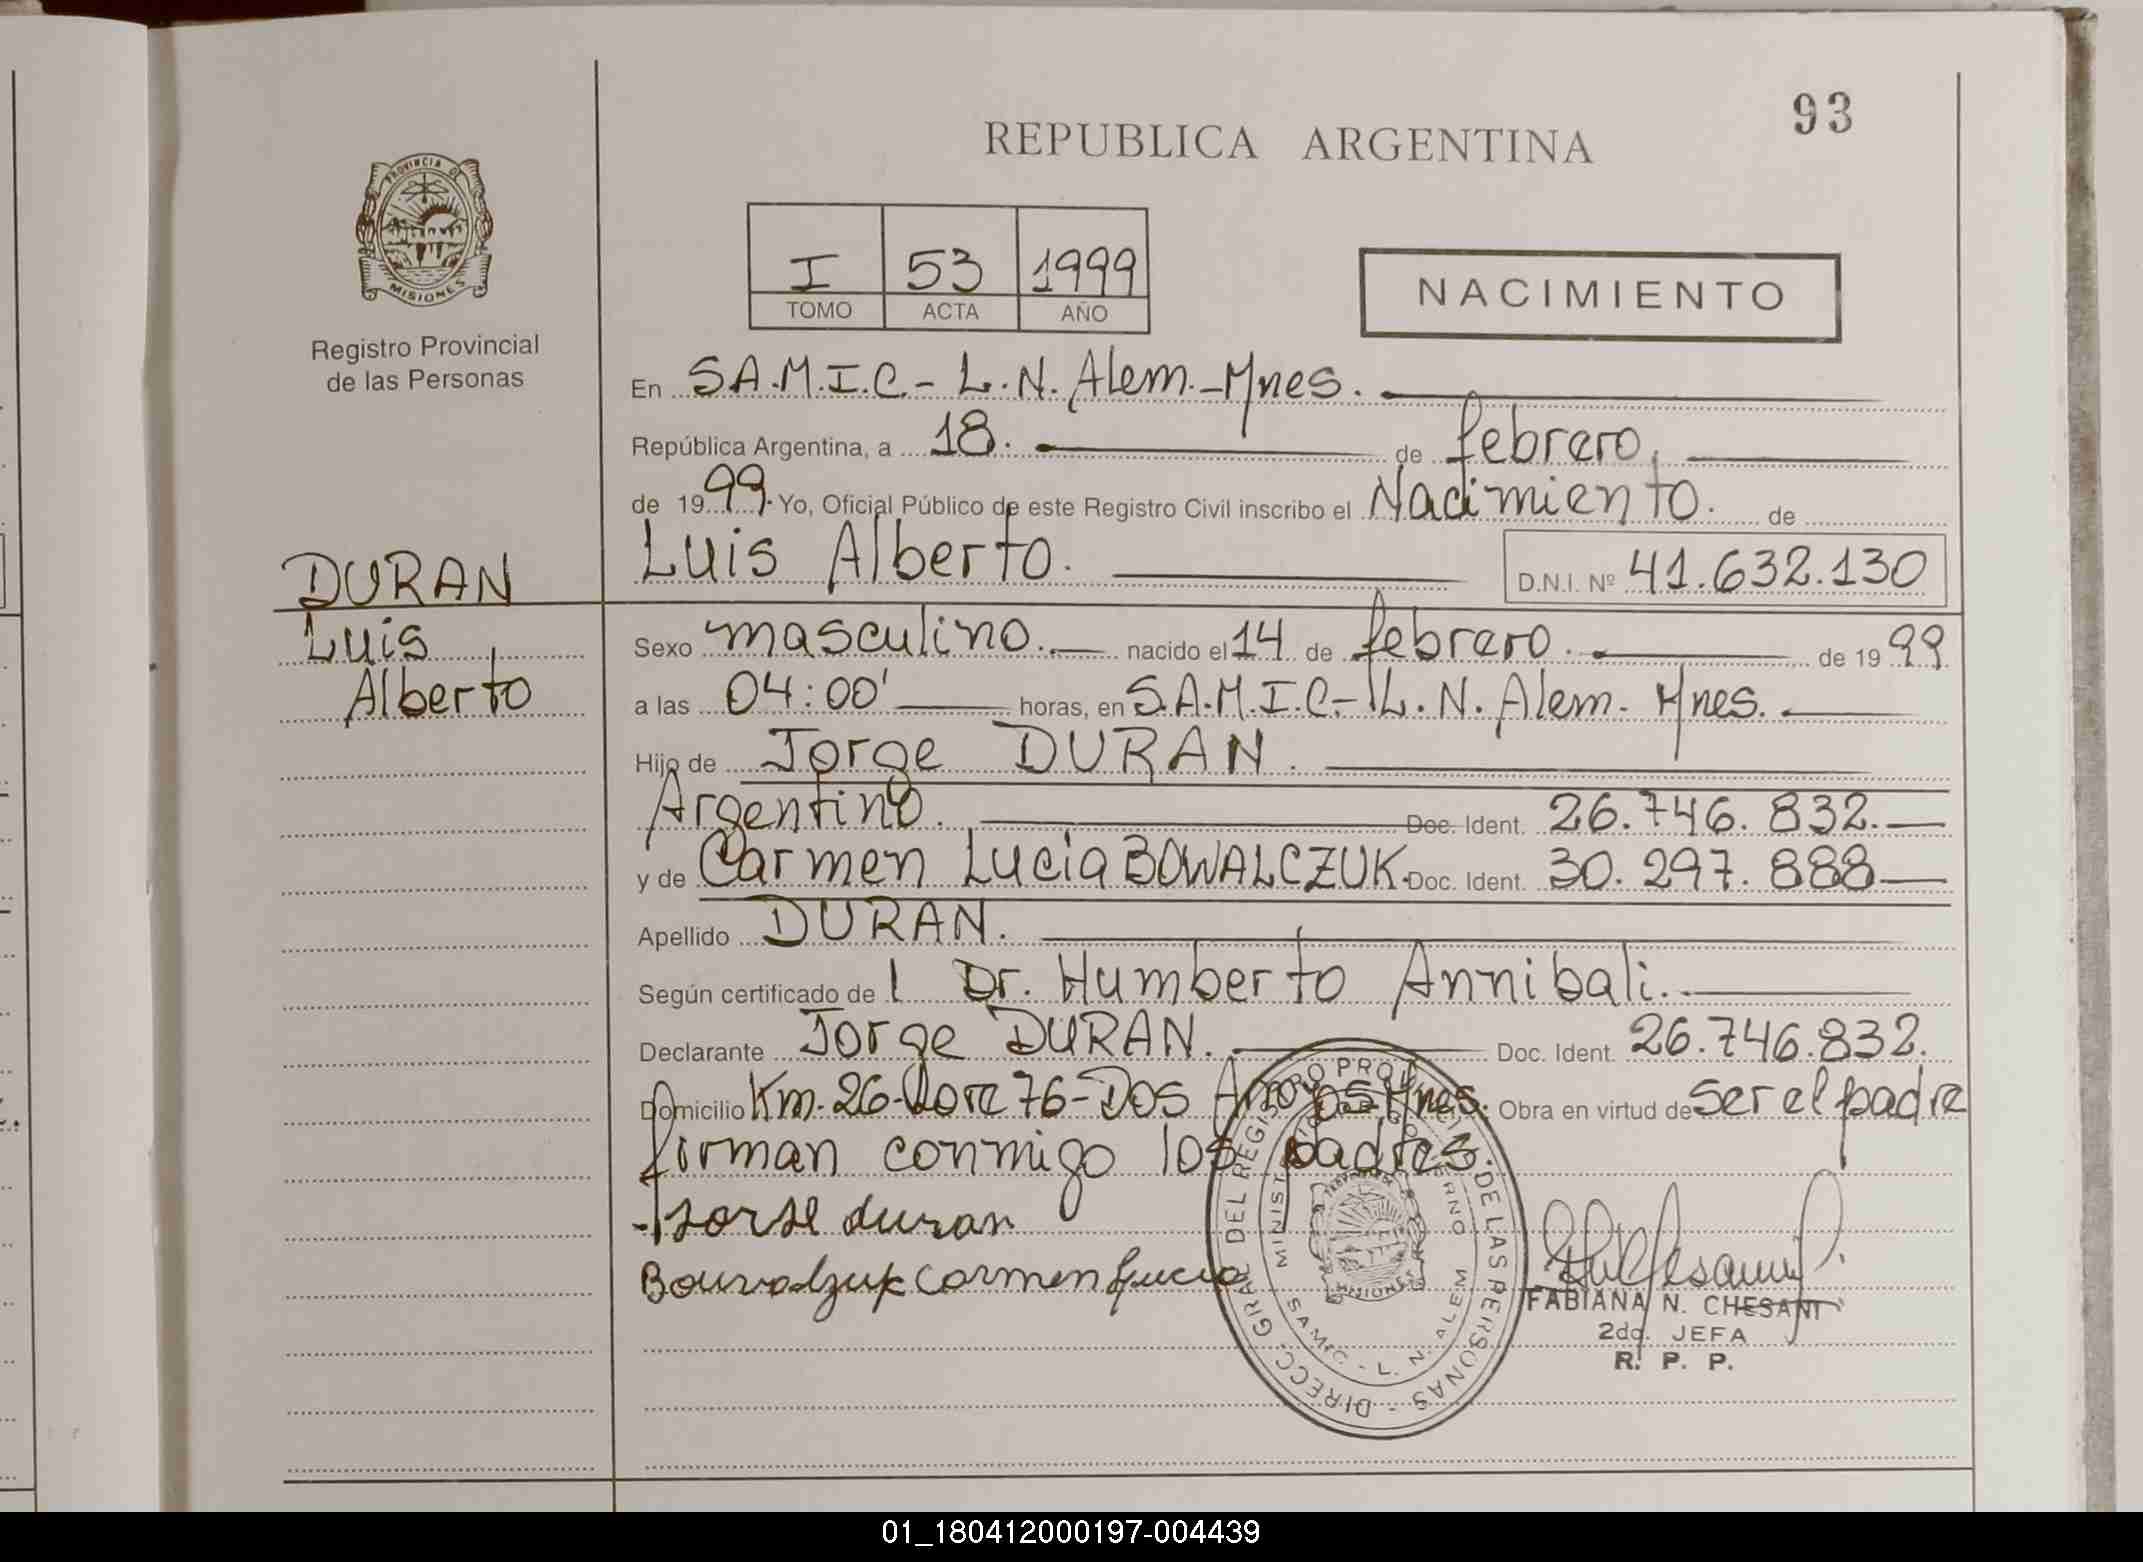 93
REPUBLICA ARGENTINA
PROVINCIA DE
MISIONES
Registro Provincial
de las Personas
I 53 1999
TOMO ACTA AÑO
NACIMIENTO
En S.A.M.I.C.- L.N. Alem.-Mnes.
República Argentina, a 18. de febrero,
de 1999. Yo, Oficial Público de este Registro Civil inscribo el Nacimiento. de
Luis Alberto. D.N.I. Nº 41.632.130
DURAN
Luis
Alberto
Sexo masculino. nacido el 14 de febrero. de 1999
a las 04:00' horas, en S.A.M.I.C.- L.N. Alem. Mnes.
Hijo de Jorge DURAN.
Argentino. Doc. Ident. 26.746.832.
y de Carmen Lucia BOWALCZUK. Doc. Ident. 30.297.888
Apellido DURAN.
Según certificado de l Dr. Humberto Annibali.
Declarante Jorge DURAN. Doc. Ident. 26.746.832.
Domicilio Km. 26-Lote 76-Dos Arroyos Mnes. Obra en virtud de ser el padre
firman conmigo los padres.
duran
Carmen Lucia
DIRECC. GRAL DEL REGISTRO PROVINCIAL DE LAS PERSONAS -
MINISTERIO DE GOBIERNO
SAMIC - L. N. ALEM
MISIONES
FABIANA N. CHESANI
2da. JEFA
R. P. P.
01_180412000197-004439